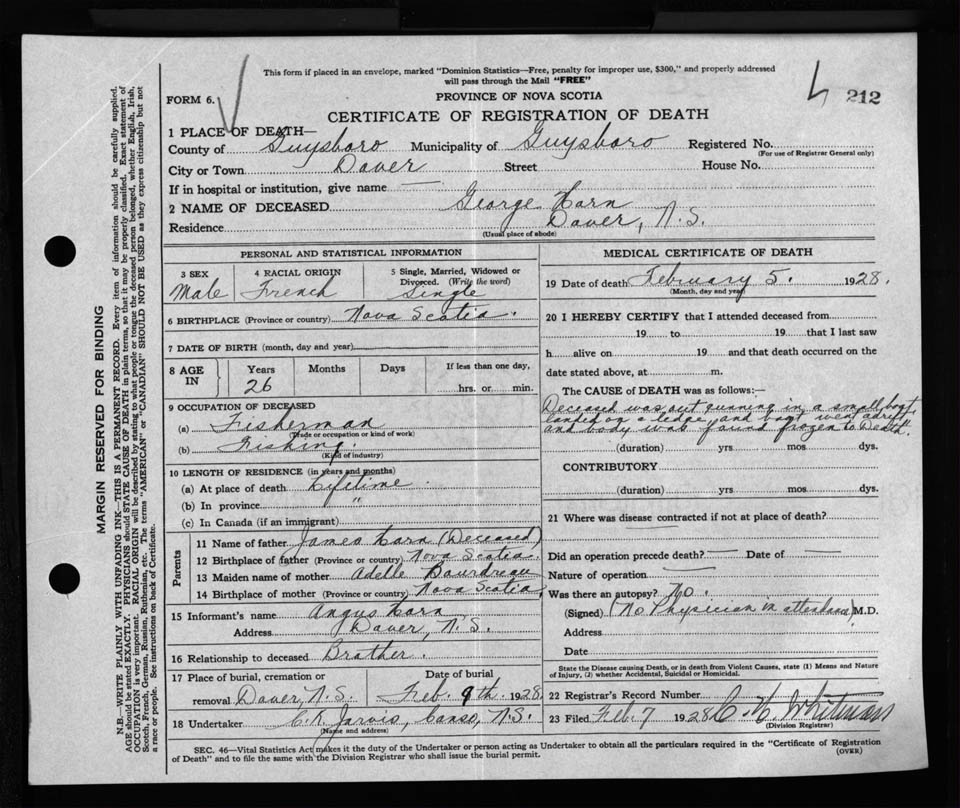 This form if placed in an envelope, marked "Dominion Statistics—Free, penalty for improper use, $300," and properly addressed
will pass through the Mail "FREE"
212
PROVINCE OF NOVA SCOTIA
FORM 6.
CERTIFICATE OF REGISTRATION OF DEATH
1 PLACE OF DEATH—
County of Guysboro Municipality of Guysboro Registered No.
(For use of Registrar General only)
City or Town Dover Street House No.
If in hospital or institution, give name —
2 NAME OF DECEASED George Horn
Residence Dover, N.S.
(Usual place of abode)
PERSONAL AND STATISTICAL INFORMATION
3 SEX 4 RACIAL ORIGIN 5 Single, Married, Widowed or
Divorced. (Write the word)
Male French Single
6 BIRTHPLACE (Province or country) Nova Scotia.
7 DATE OF BIRTH (month, day and year)
8 AGE IN Years Months Days If less than one day,
26 hrs. or min.
9 OCCUPATION OF DECEASED
(a) Fisherman
(Trade or occupation or kind of work)
(b) Fishing.
(Kind of industry)
10 LENGTH OF RESIDENCE (in years and months)
(a) At place of death Lifetime.
(b) In province "
(c) In Canada (if an immigrant)
Parents
11 Name of father James Horn (Deceased)
12 Birthplace of father (Province or country) Nova Scotia.
13 Maiden name of mother Adelle Bourdreau
14 Birthplace of mother (Province or country) Nova Scotia.
15 Informant's name Angus Horn
Address Dover, N.S.
16 Relationship to deceased Brother.
17 Place of burial, cremation or Date of burial
removal Dover, N.S. Feb. 9th. 1928
18 Undertaker C. R. Jarvis, Canso, N.S.
(Name and address)
MEDICAL CERTIFICATE OF DEATH
19 Date of death February 5. 1928.
(Month, day and year)
20 I HEREBY CERTIFY that I attended deceased from
19 to 19 that I last saw
h alive on 19 and that death occurred on the
date stated above, at m.
The CAUSE of DEATH was as follows:—
Deceased was out gunning in a small boat
landed on ledge and boat went adrift
and body was found frozen to Death.
(duration) yrs mos dys.
CONTRIBUTORY
(duration) yrs mos dys.
21 Where was disease contracted if not at place of death?
Did an operation precede death? — Date of —
Nature of operation —
Was there an autopsy? No.
(Signed) (No Physician in attendance) M.D.
Address
Date
State the Disease causing Death, or in death from Violent Causes, state (1) Means and Nature
of Injury, (2) whether Accidental, Suicidal or Homicidal.
22 Registrar's Record Number
23 Filed Feb. 7 1928 Whitman
(Division Registrar)
SEC. 46—Vital Statistics Act makes it the duty of the Undertaker or person acting as Undertaker to obtain all the particulars required in the "Certificate of Registration
of Death" and to file the same with the Division Registrar who shall issue the burial permit.
(OVER)
MARGIN RESERVED FOR BINDING
N.B.—WRITE PLAINLY WITH UNFADING INK—THIS IS A PERMANENT RECORD. Every item of information should be carefully supplied.
AGE should be stated EXACTLY. PHYSICIANS should STATE CAUSE OF DEATH in plain terms, so that it may be properly classified. Exact statement of
OCCUPATION is very important. RACIAL ORIGIN will be described by stating to what people or tongue the deceased person belonged, whether English, Irish,
Scotch, French, German, Russian, Ruthenian, etc. The terms "AMERICAN" or "CANADIAN" SHOULD NOT BE USED as they express citizenship but not
a race or people. See instructions on back of Certificate.